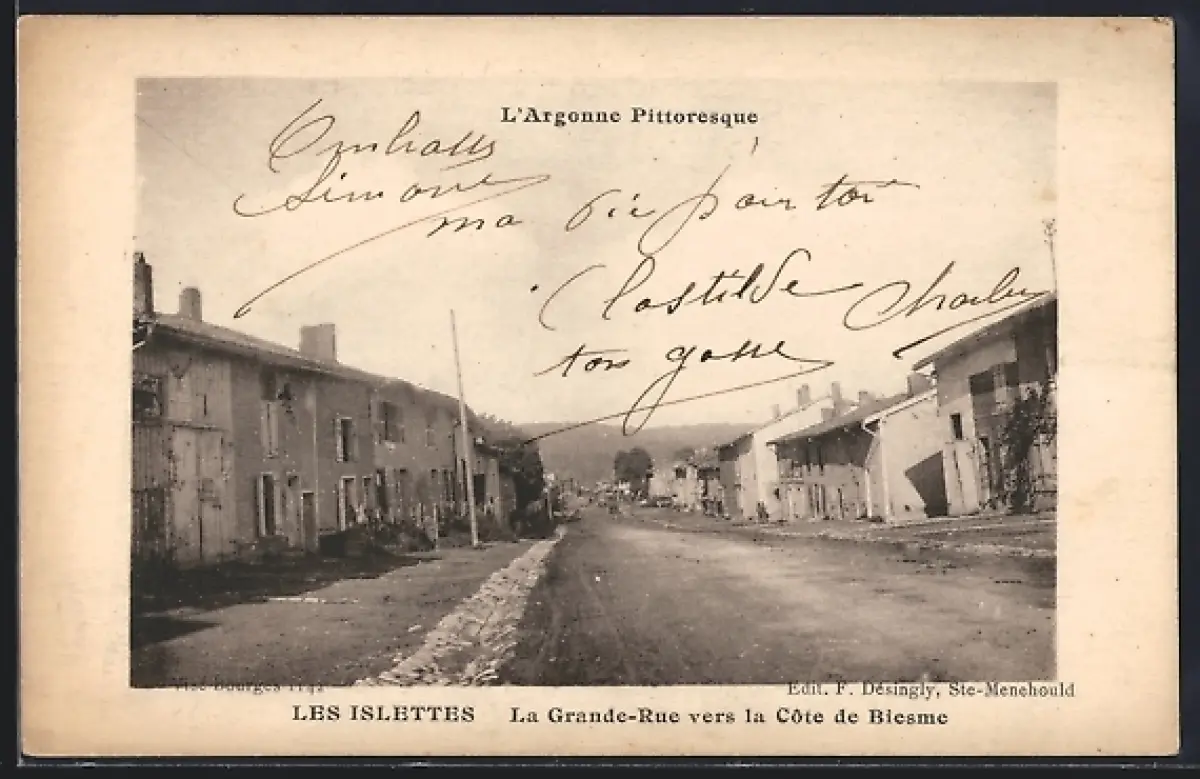 L'Argonne Pittoresque
Embrasse
Simone
ma pour toi
Clotilde Charles
ton gosse
Visé Bourges 1142
Edit. F. Désingly, Ste-Menehould
LES ISLETTES La Grande-Rue vers la Côte de Biesme